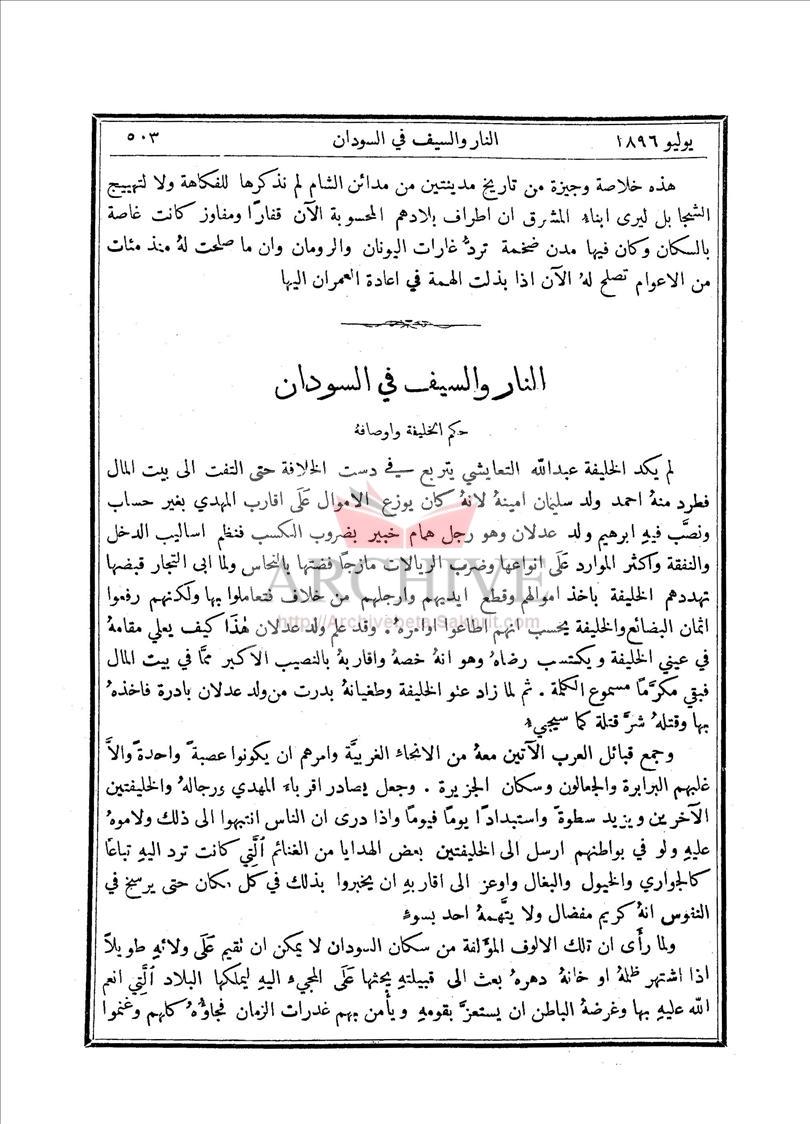 يوليو ١٨٩٦ النار والسيف في السودان ٥٠٣
هذه خلاصة وجيزة من تاريخ مدينتين من مدائن الشام لم نذكرها للفكاهة ولا لتهييج
الشجا بل ليرى ابناء المشرق ان اطراف بلادهم المحسوبة الآن قفارًا ومفاوز كانت غاصة
بالسكان وكان فيها مدن ضخمة تردُّ غارات اليونان والرومان وان ما صلحت لهُ منذ مئات
من الاعوام تصلح لهُ الآن اذا بذلت الهمة في اعادة العمران اليها
النار والسيف في السودان
حكم الخليفة واوصافهُ
لم يكد الخليفة عبدالله التعايشي يتربع في دست الخلافة حتى التفت الى بيت المال
فطرد منهُ احمد ولد سليمان امينهُ لانهُ كان يوزع الاموال عَلَى اقارب المهدي بغير حساب
ونصَّب فيهِ ابرهيم ولد عدلان وهو رجل همام خبير بضروب الكسب فنظم اساليب الدخل
والنفقة واكثر الموارد عَلَى انواعها وضرب الريالات مازجًا فضتها بالنحاس ولما ابى التجار قبضها
تهددهم الخليفة باخذ اموالهم وقطع ايديهم وارجلهم من خلاف فتعاملوا بها ولكنهم رفعوا
اثمان البضائع والخليفة يحسب انهم اطاعوا اوامرهُ. وقد علم ولد عدلان هٰذا كيف يعلي مقامهُ
في عيني الخليفة ويكتسب رضاهُ وهو انهُ خصهُ واقاربهُ بالنصيب الاكبر ممَّا في بيت المال
فبقي مكرَّمًا مسموع الكلمة. ثم لما زاد عتو الخليفة وطغيانهُ بدرت من ولد عدلان بادرة فاخذهُ
بها وقتلهُ شرَّ قتلة كما سيجيء
وجمع قبائل العرب الآتين معهُ من الانحاء الغربيَّة وامرهم ان يكونوا عصبةً واحدةً والاَّ
غلبهم البرابرة والجعالون وسكان الجزيرة. وجعل يصادر اقرباء المهدي ورجالهُ والخليفتين
الآخرين ويزيد سطوةً واستبدادًا يومًا فيومًا واذا درى ان الناس انتبهوا الى ذلك ولاموهُ
عليهِ ولو في بواطنهم ارسل الى الخليفتين بعض الهدايا من الغنائم ٱلَّتي كانت ترد اليهِ تباعًا
كالجواري والخيول والبغال واوعز الى اقاربهِ ان يخبروا بذلك في كل مكان حتى يرسخ في
النفوس انهُ كريم مفضال ولا يتَّهمهُ احد بسوء
ولما رأى ان تلك الالوف المؤلفة من سكان السودان لا يمكن ان تقيم عَلَى ولائهِ طويلاً
اذا اشتهر ظلمهُ او خانهُ دهرهُ بعث الى قبيلتهِ يحثها عَلَى المجيء اليهِ ليملكها البلاد ٱلَّتي انعم
الله عليهِ بها وغرضهُ الباطن ان يستعزَّ بقومهِ ويأمن بهم غدرات الزمان فجاؤُوهُ كلهم وغنموا
ARCHIVE
http://Archivebeta.Sakhrit.com